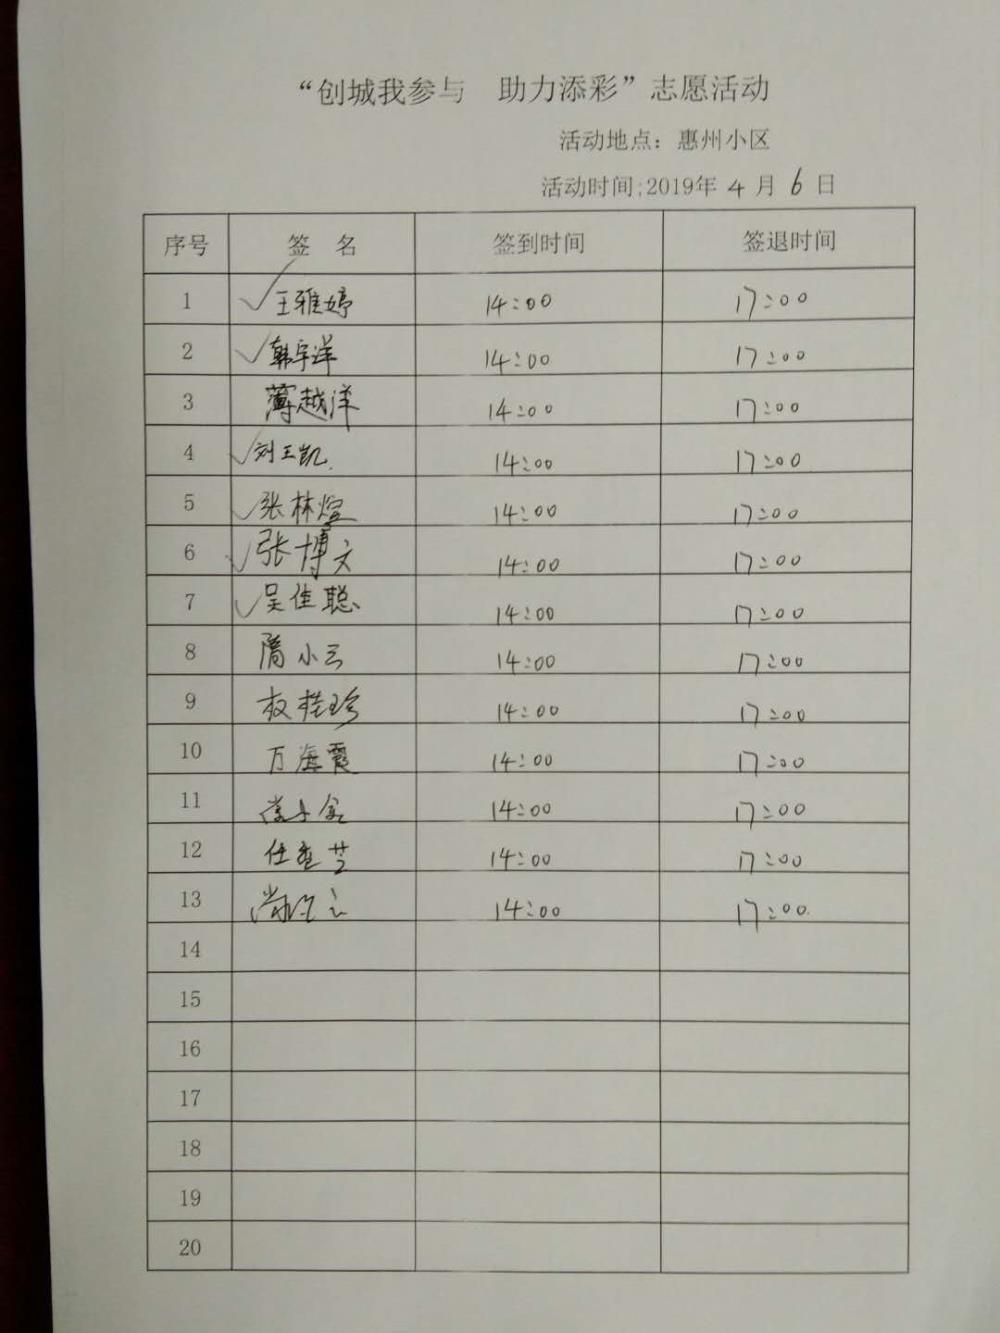 “创城我参与 助力添彩”志愿活动
活动地点：惠州小区
活动时间:2019年 4 月 6 日
序号 签 名 签到时间 签退时间
1 王雅婷 14:00 17:00
2 韩宇洋 14:00 17:00
3 薄越洋 14:00 17:00
4 刘王凯 14:00 17:00
5 张林煊 14:00 17:00
6 张博文 14:00 17:00
7 吴佳聪 14:00 17:00
8 隋小云 14:00 17:00
9 权桂珍 14:00 17:00
10 万海霞 14:00 17:00
11 14:00 17:00
12 14:00 17:00
13 14:00 17:00
14
15
16
17
18
19
20